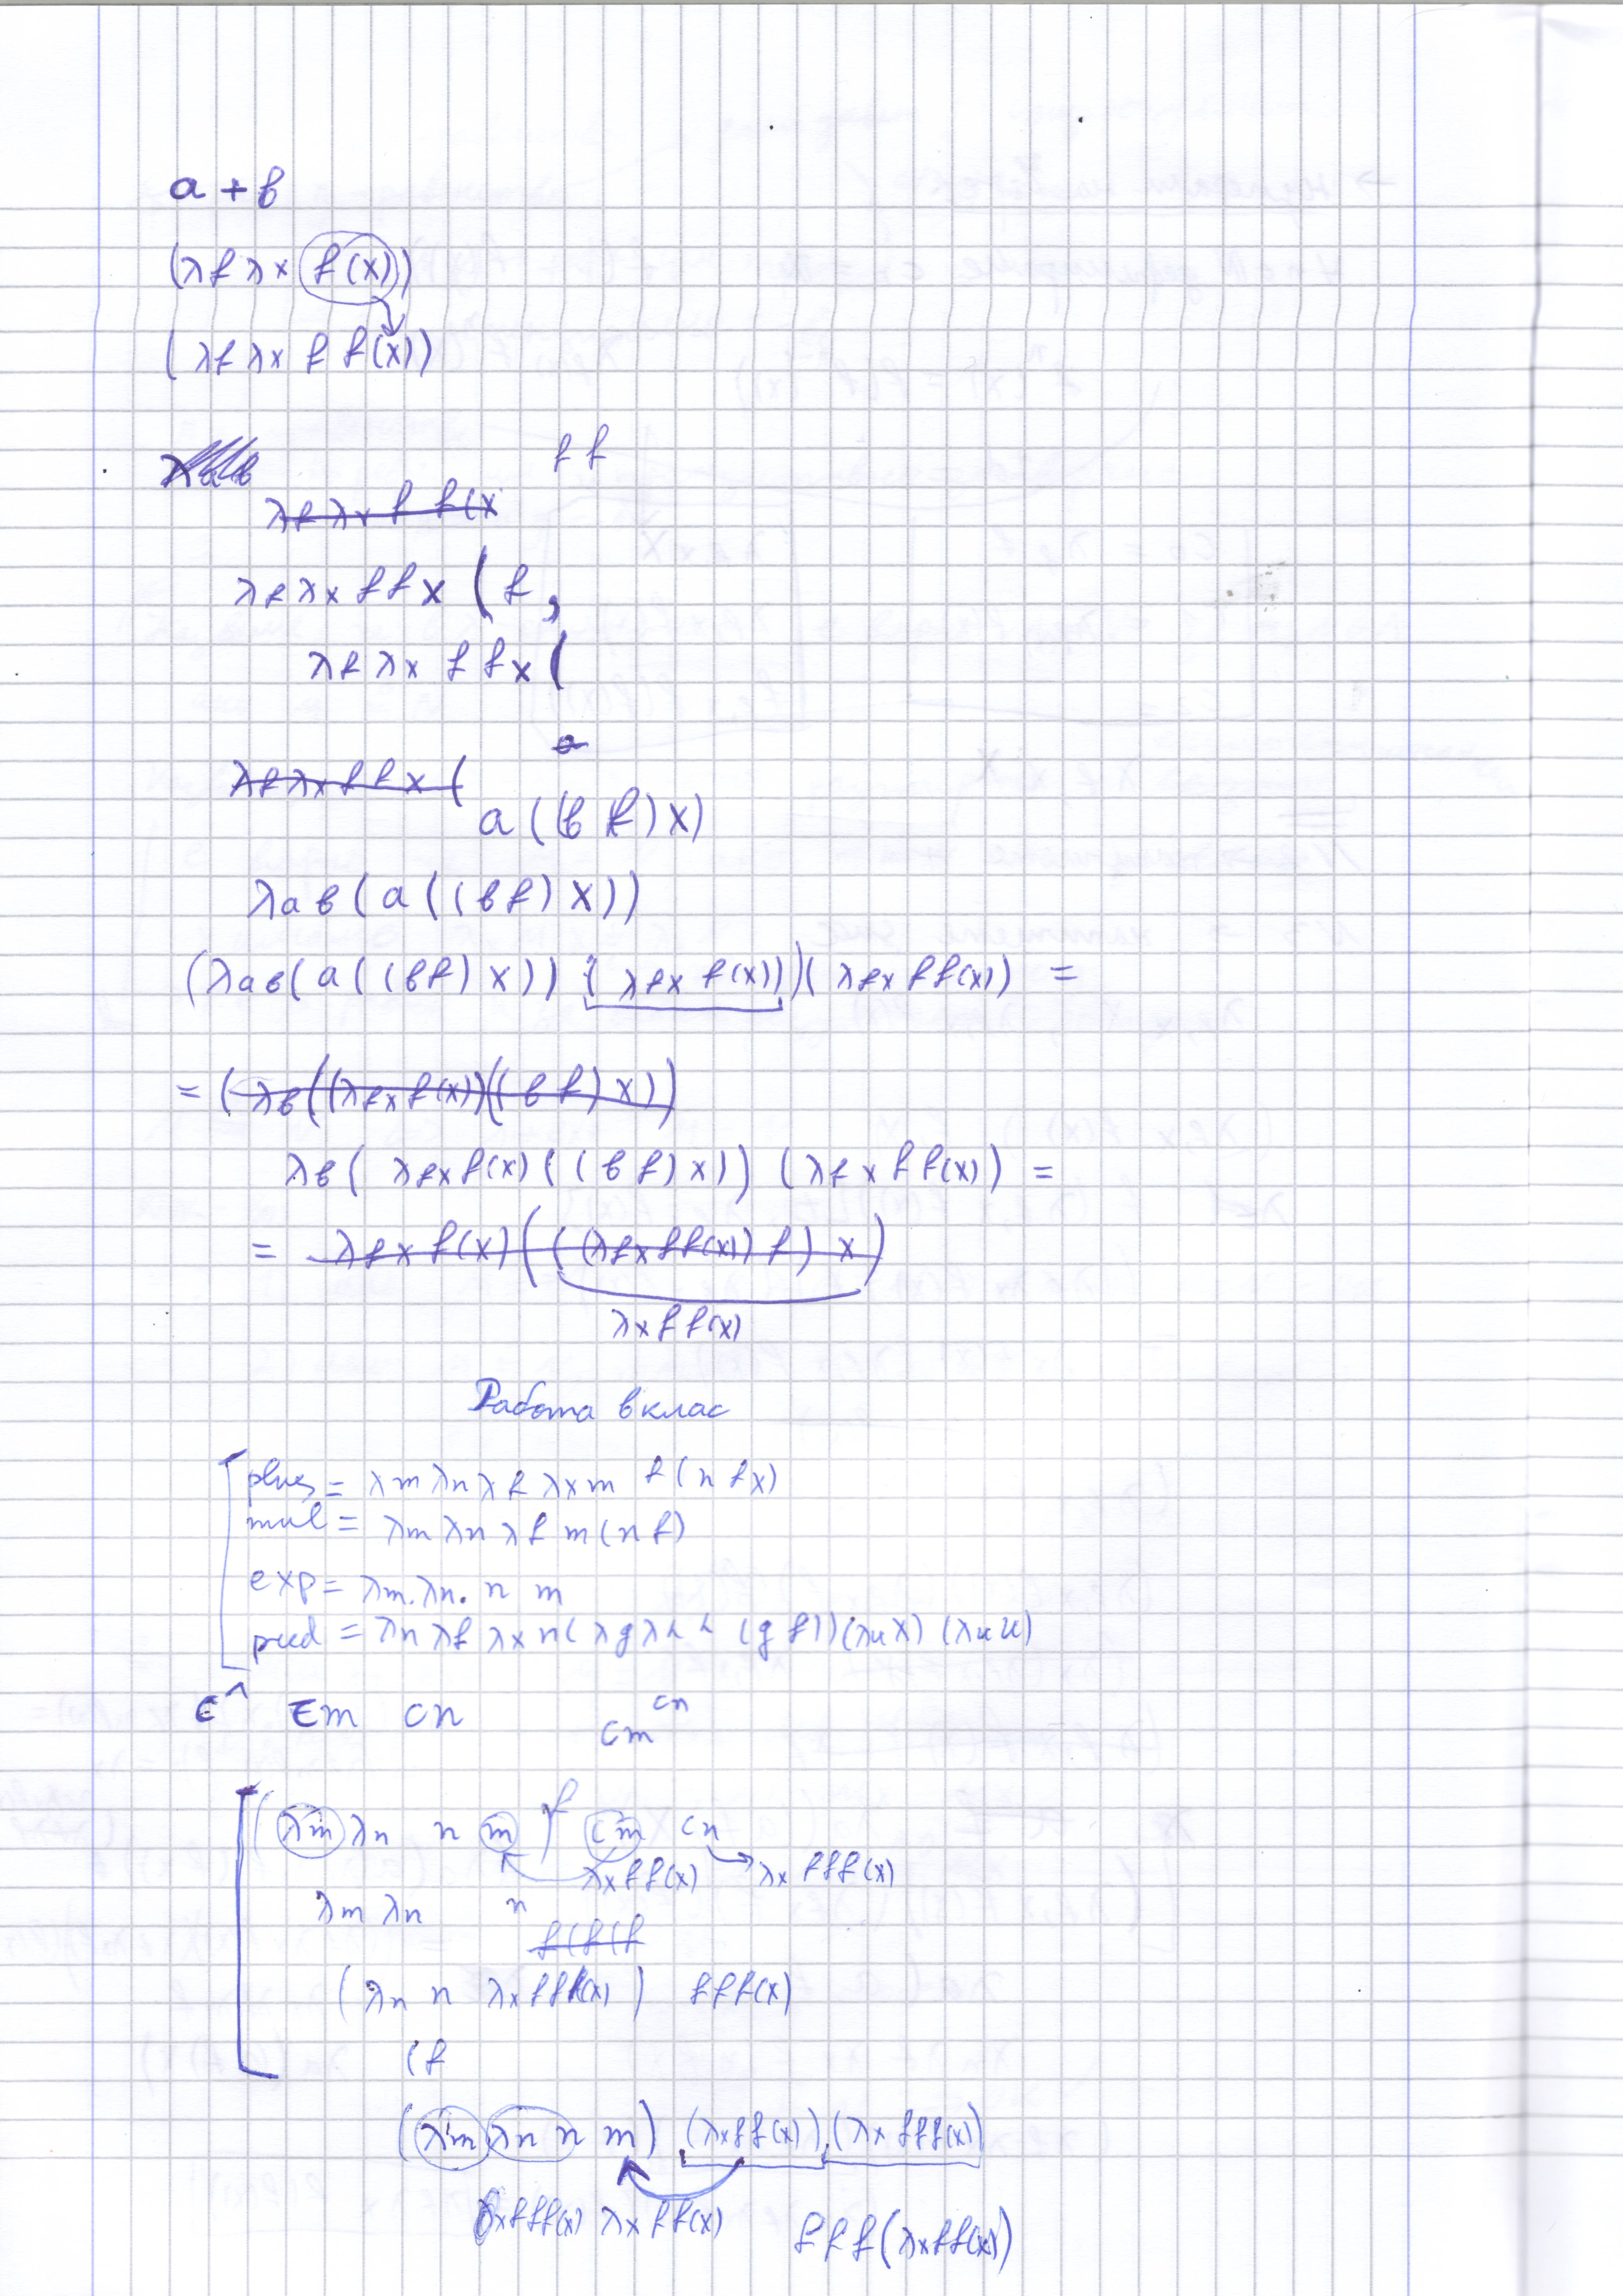 a + в
(λf λx f(x))
(λf λx f f(x))
f f
λf λx f f(x
λf λx f f x ( f ,
λf λx f f x (
a
λf λx f f x (
a ((в f) x)
λa в ( a ( (в f) x ))
(λaв( a ( (вf) x )) ( λfx f(x)) )( λfx f f(x)) =
= ( λв((λfx f(x))(( в f) x ))
λв ( λfx f(x) ( (в f) x )) (λf x f f(x)) =
= λf x f(x) ( ( (λfx f f(x)) f ) x )
λx f f(x)
Работа в клас
plus = λm λn λf λx m f (n f x)
mul = λm λn λf m (n f)
exp = λm. λn. n m
pred = λn λf λx n( λg λh h (g f)) (λu x) (λu u)
cm cn cm^cn
( λm λn n m ) f cm cn
λx f f(x) λx f f f(x)
λm λn n
f(f(f
( λn n λx f f f(x) ) f f f(x)
( f
( λm λn n m ) (λx f f(x)) (λx f f f(x))
λx f f f(x) λx f f(x) f f f (λx f f(x))